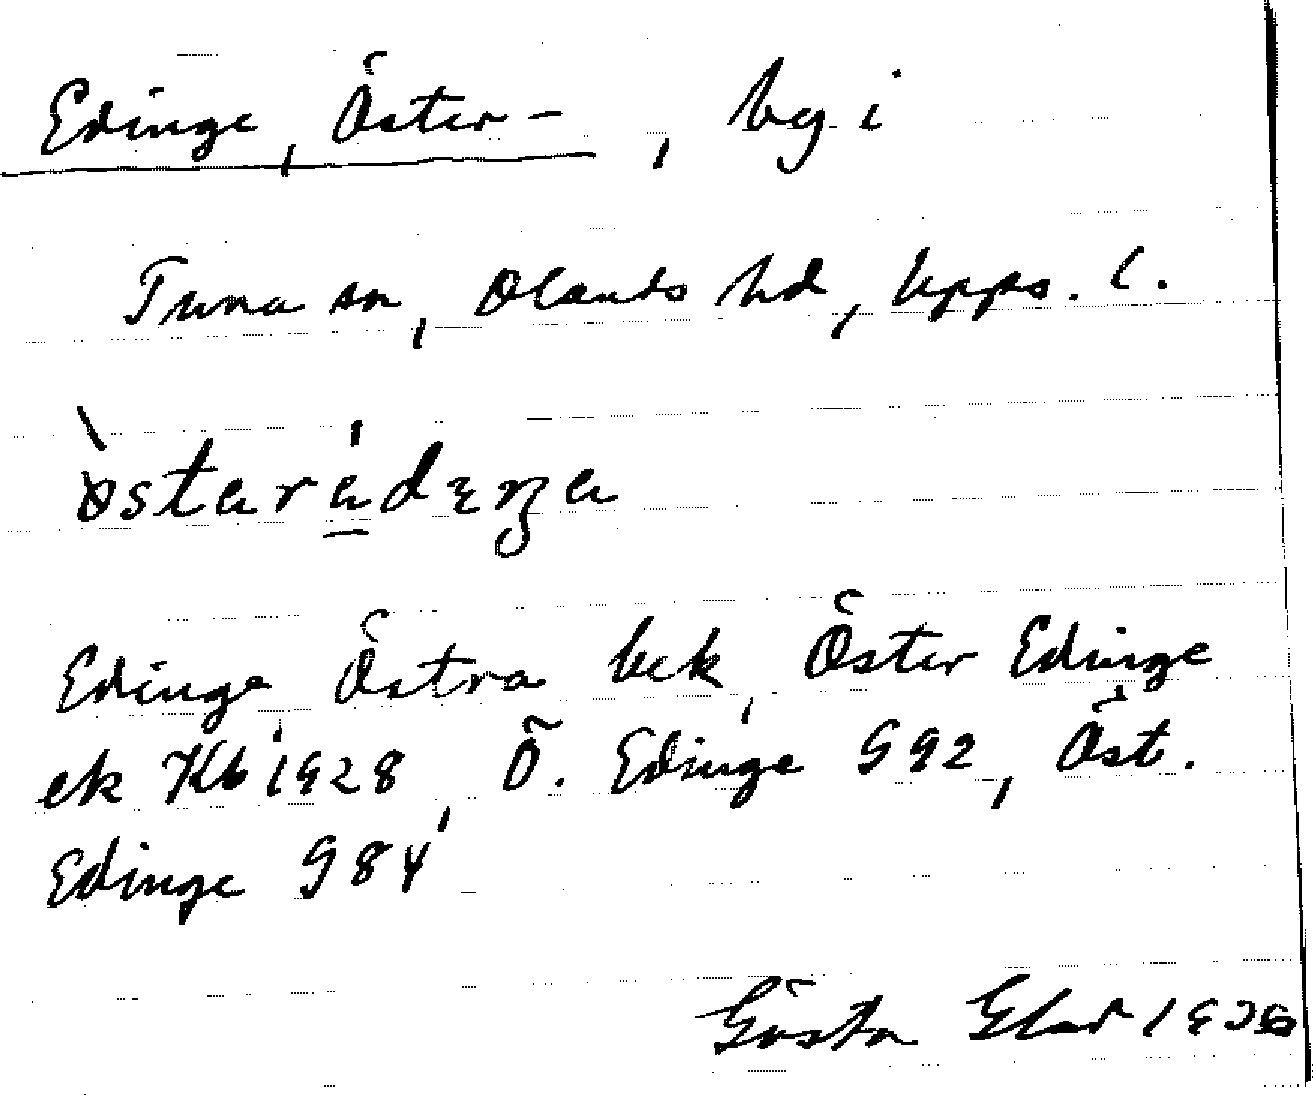 Edinge, Öster-, by i
Tuna sn, Olands hd, Upps. l.
Edinge, Östra bek, Öster Edinge
ek Kb 1928, Ö. Edinge G92, Öst.
Edinge G84
Gösta